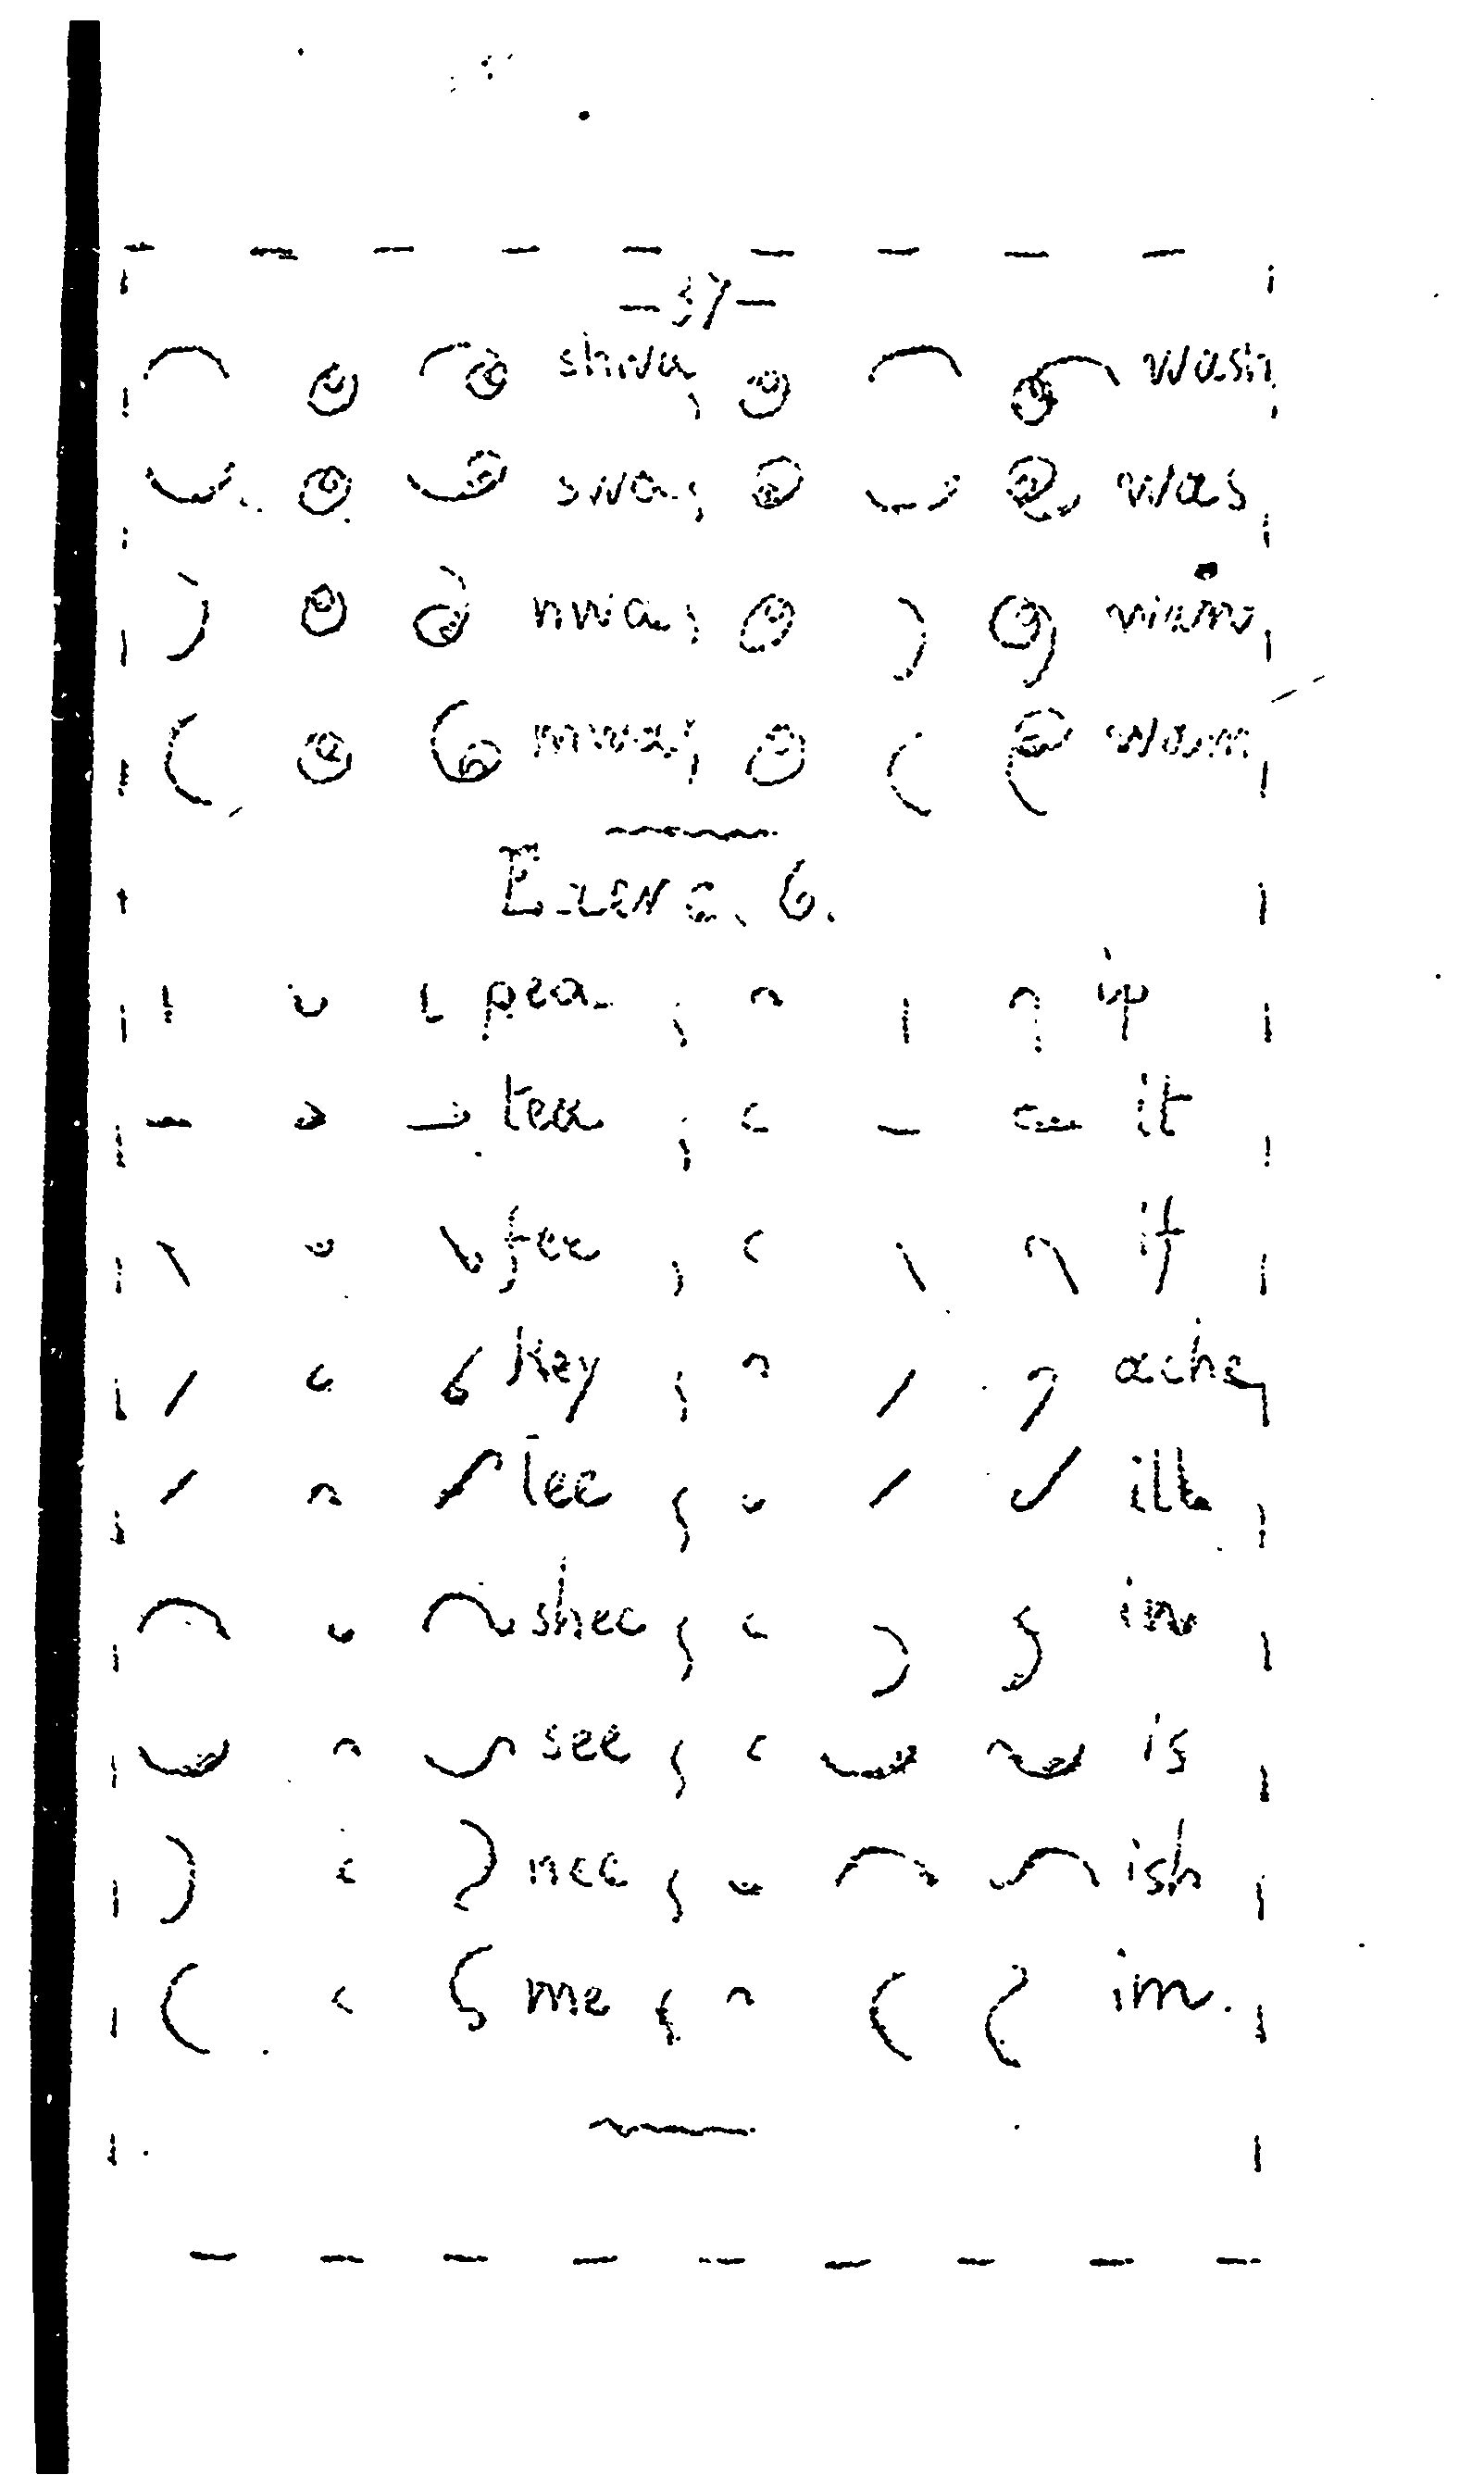 -37-
shwa; wash
swa; was
nwa; wan
mwa; wam
Exerc. 6.
pea; ip
tea; it
fee; if
Key; ache
lee; ill
shee; in
see; is
nee; ish
me; im.